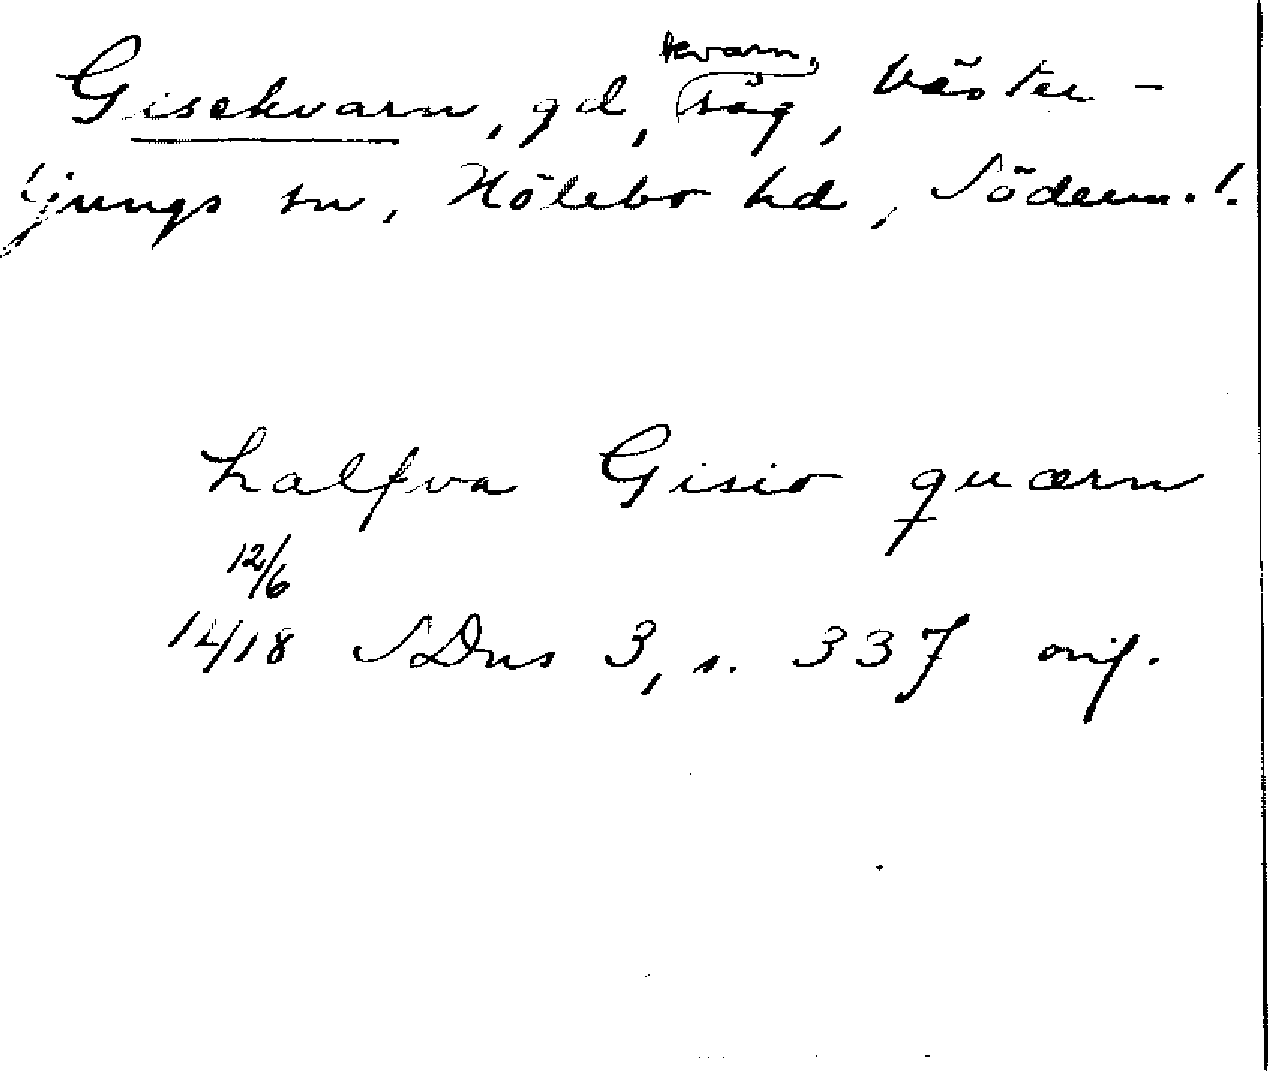 Gisekvarn, gd, kvarn, såg, Väster-
ljungs sn, Hölebo hd, Söderm. l.
halfva Gisio quærn
12/6
1418 SDns 3, s. 337 orig.